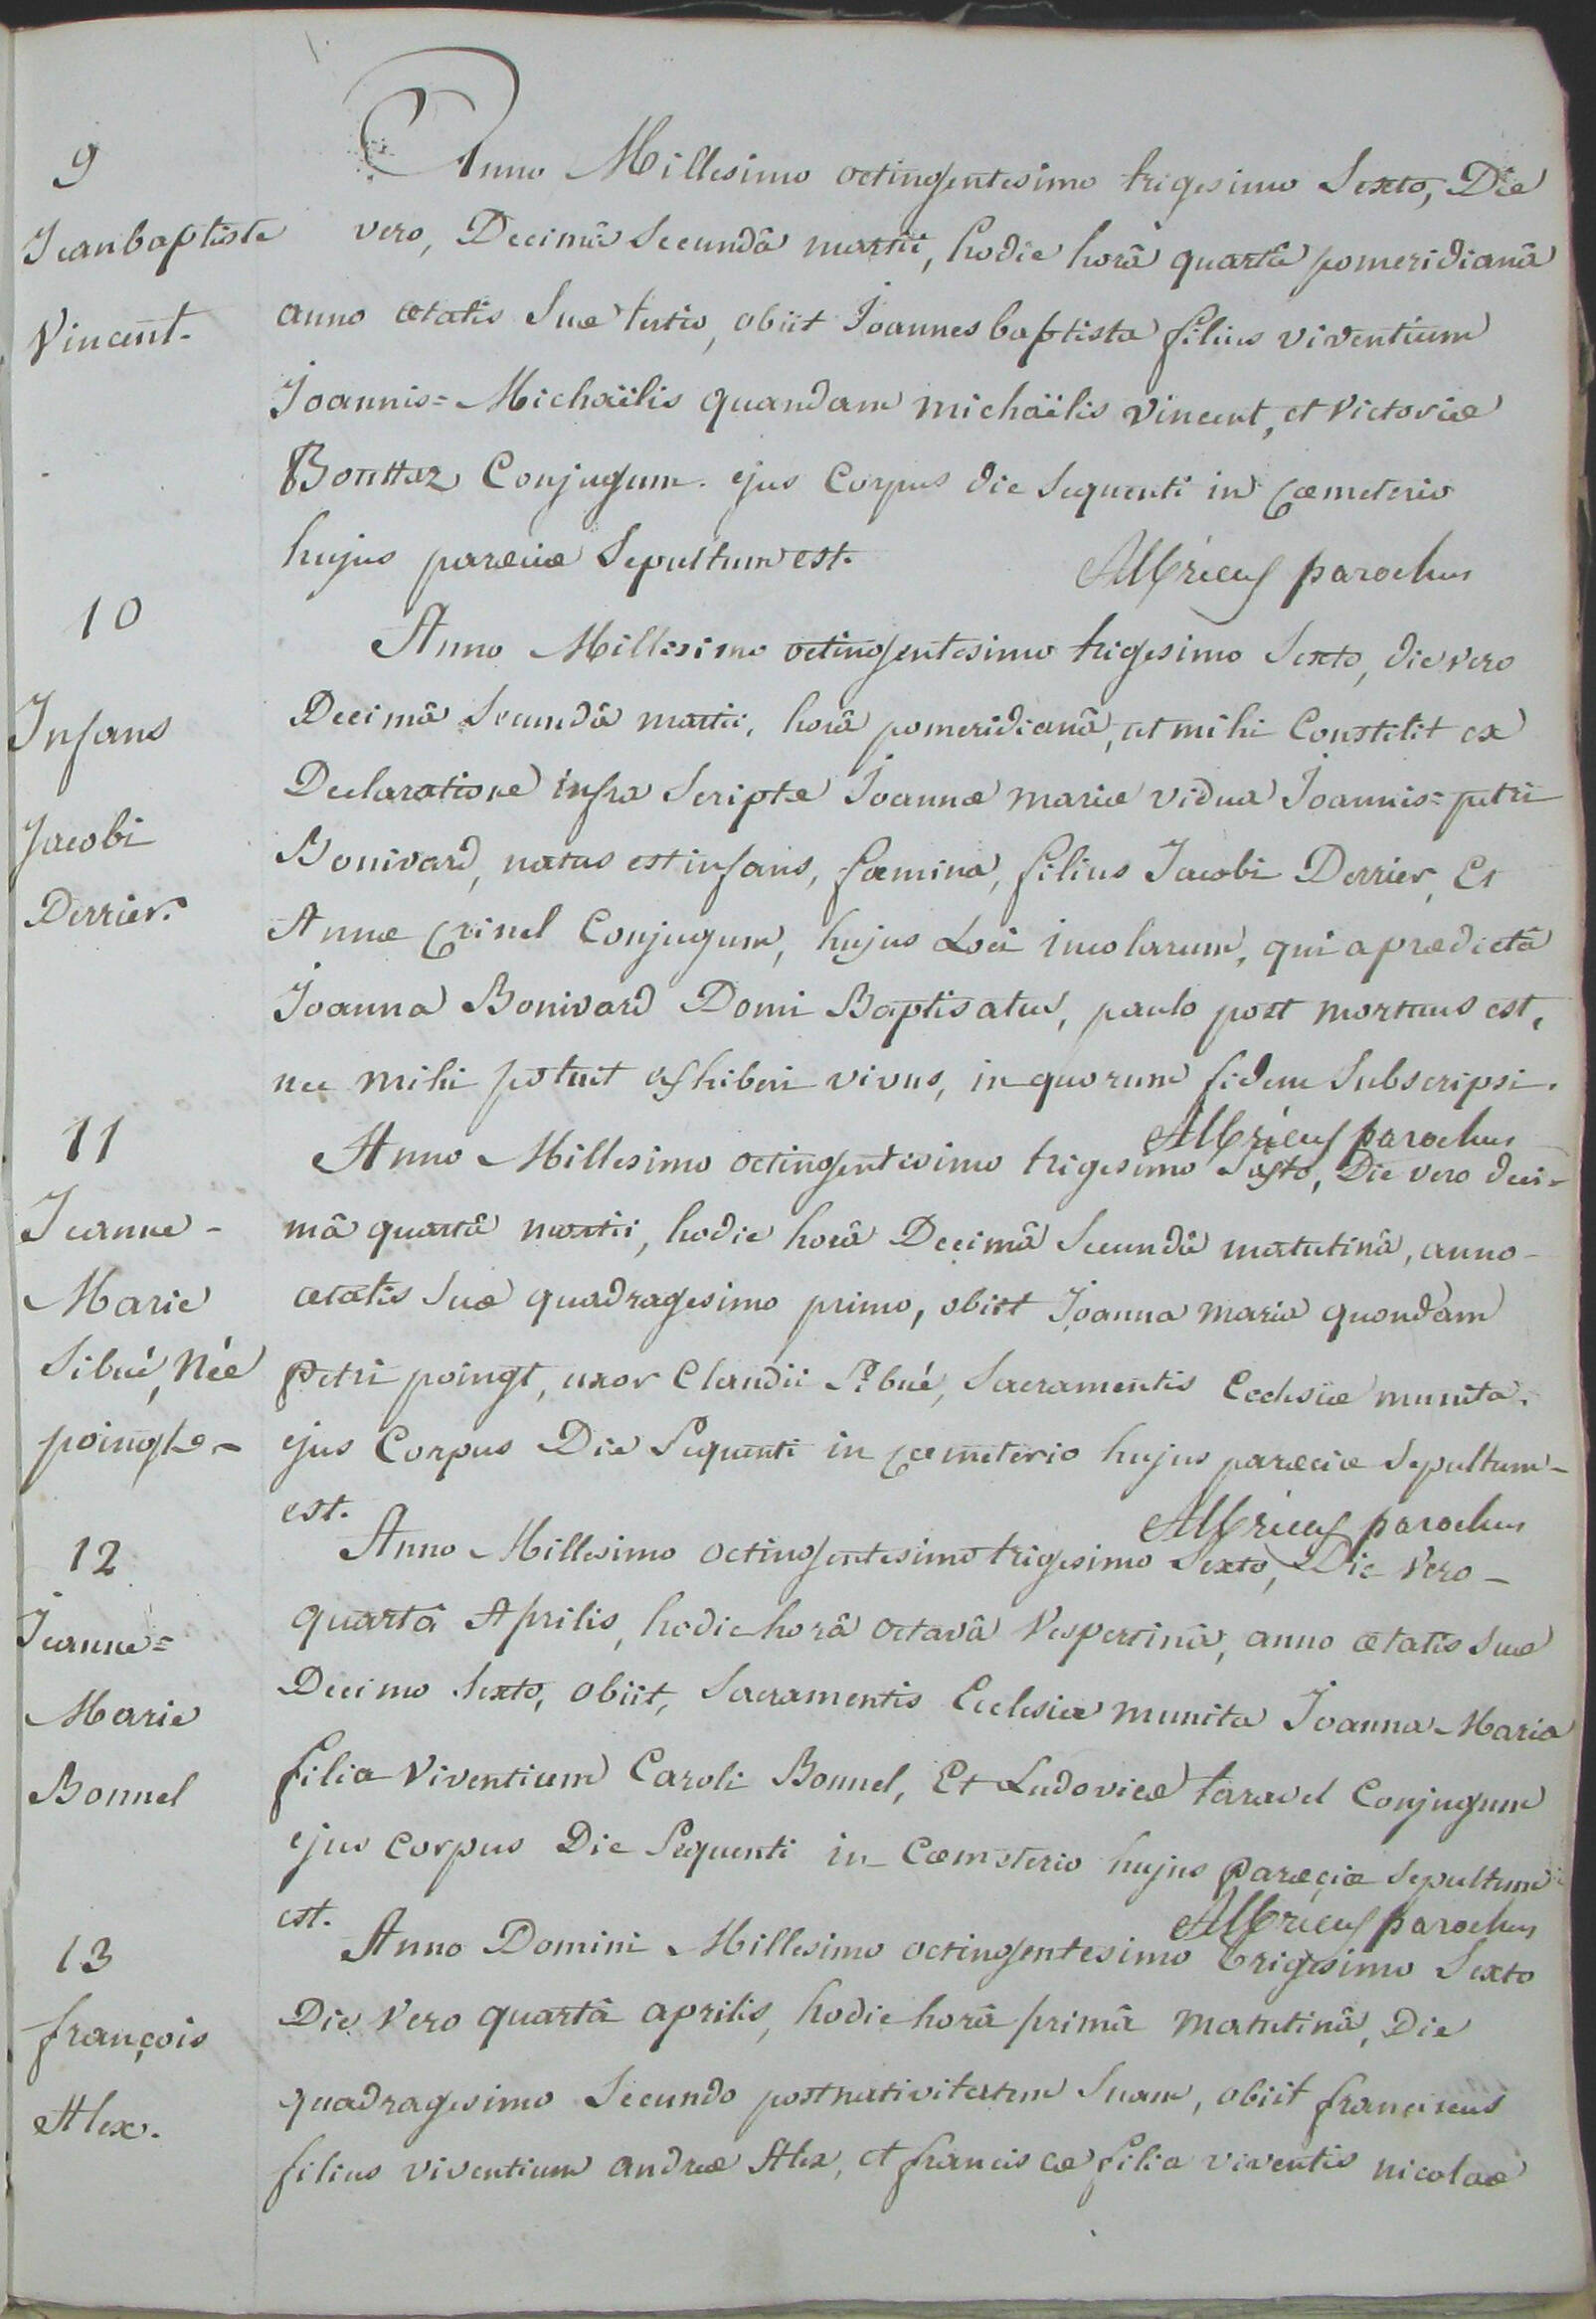 9
Jeanbaptiste
Vincent.
Anno Millesimo octingentesimo trigesimo Sexto, Die
vero, Decimâ Secundâ martii, hodie horâ quartâ pomeridianâ
anno ætatis Suæ tertio, obiit Joannes baptista filius viventium
Joannis=Michaëlis quandam michaëlis vincent, et victoriæ
Conjugum. ejus Corpus die Sequenti in Cœmeterio
hujus parœciæ Sepultum est.
parochus
10
Infans
Jacobi
Derrier.
Anno Millesimo octingentesimo trigesimo Sexto, die vero
Decimâ Secundâ martii, horâ pomeridianâ, ut mihi Constitit ex
Declaratione infra Scriptæ Joannæ mariæ vidua Joannis=petri
Bonivard, natus est infans, fœmina, filius Jacobi Derrier, Et
Annæ Crinel Conjugum, hujus Loci incolarum, qui a prædictâ
Joanna Bonivard Domi Baptisatus, paulo post mortuus est,
nec mihi potuit exhiberi vivus, in quorum fidem Subscripsi.
parochus
11
Jeanne-
Marie
Sibué, Née
poingt.-
Anno Millesimo octingentesimo trigesimo Sexto, Die vero deci-
mâ quartâ martii, hodie horâ Decimâ Secundâ matutinâ, anno-
ætatis Suæ quadragesimo primo, obiit Joanna maria quondam
petri poingt, uxor Claudii Sibué, Sacramentis Ecclesiæ munita.
ejus Corpus Die Sequenti in Cœmeterio hujus parœciæ Sepultum-
est.
parochus
12
Jeanne=
Marie
Bonnel
Anno Millesimo octingentesimo trigesimo Sexto, Die Vero-
quartâ Aprilis, hodie horâ octavâ Vespertinâ, anno ætatis Suæ
Decimo Sexto, obiit, Sacramentis Ecclesiæ munita Joanna Maria
filia Viventium Caroli Bonnel, Et Ludovicæ taravel Conjugum
ejus corpus Die Sequenti in Cœmeterio hujus Parœciæ Sepultum
est.
parochus
13
françois
Alex.
Anno Domini Millesimo octingentesimo trigesimo Sexto
Die Vero quartâ aprilis, hodie horâ primâ matutinâ, Die
quadragesimo Secundo post nativitatem Suam, obiit franciscus
filius viventium andreæ Alex, et franciscæ filia viventis nicolaæ